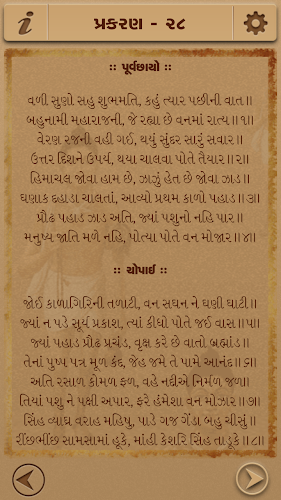 પ્રકરણ - ૨૮
:: પૂર્વછાયો ::
વળી સુણો સહુ શુભમતિ, કહું ત્યાર પછીની વાત॥
બહુનામી મહારાજની, જે રહ્યા છે વનમાં રાત્ય॥૧॥
વેરણ રજની વહી ગઈ, થયું સુંદર સારું સવાર॥
ઉત્તર દિશને ઉપર્ય, થયા ચાલવા પોતે તૈયાર॥૨॥
હિમાચલ જોવા હામ છે, ઝાઝું હેત છે જોવા ઝાડ॥
ઘણાક દહાડા ચાલતાં, આવ્યો પ્રથમ કાળો પહાડ॥૩॥
પ્રૌઢ પહાડ ઝાડ અતિ, જ્યાં પશુનો નહિ પાર॥
મનુષ્ય જાતિ મળે નહિ, પોત્યા પોતે વન મોજાર॥૪॥
:: ચોપાઈ ::
જોઈ કાળાગિરિની તળાટી, વન સઘન ને ઘણી ઘાટી॥
જ્યાં ન પડે સૂર્ય પ્રકાશ, ત્યાં કીધો પોતે જઈ વાસ॥૫॥
જ્યાં પહાડ પ્રૌઢ પ્રચંડ, વૃક્ષ કરે છે વાતો બ્રહ્માંડ॥
તેનાં પુષ્પ પત્ર મૂળ કંદ, જેહ જમે તે પામે આનંદ॥૬॥
અતિ રસાળ કોમળ ફળ, વહે નદીએ નિર્મળ જળ॥
તિયાં પશુ ને પક્ષી અપાર, ફરે હંમેશા વન મોઝાર॥૭॥
સિંહ વ્યાઘ્ર વરાહ મહિષુ, પાડે ગજ ગેંડા બહુ ચીસું॥
રીંછભીંછ સામસામાં હૂકે, માંહી કેશરિ સિંહ તાડુકે॥૮॥